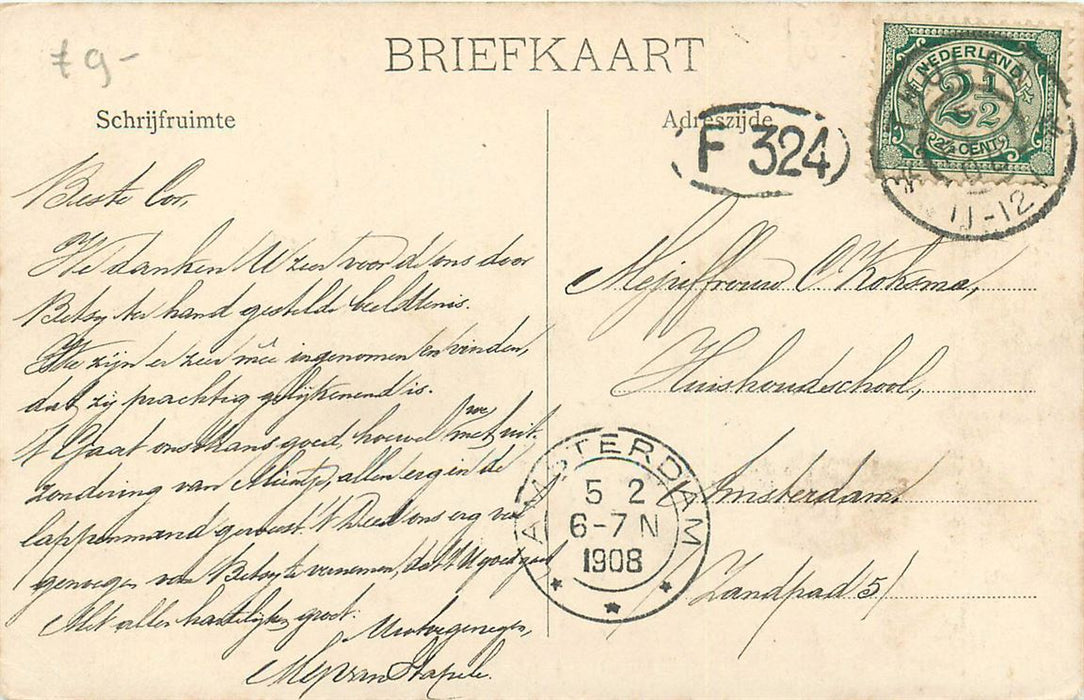 79-
BRIEFKAART
Schrijfruimte
Adreszijde
F 324
NEDERLAND
2½
2½ CENT
11-12
Beste Cor,
We danken U zeer voor de ons door
Betsy ter hand gestelde beeldtenis.
We zijn er zeer mêe ingenomen en vinden,
dat zij prachtig gelijkenend is.
't Gaat ons thans goed, hoewel we met uit-
zondering van Mientje, allen erg in de
lappenmand geweest. 't Deed ons erg veel
genoegen van Betsy te vernemen, dat 't U goed gaat
Met alle hartelijke groet.
Uw toegenegen,
van Stapele.
Mejuffrouw C. Koksma,
Huishoudschool,
Amsterdam.
(Zandpad 5)
AMSTERDAM
5 2
6-7 N
1908